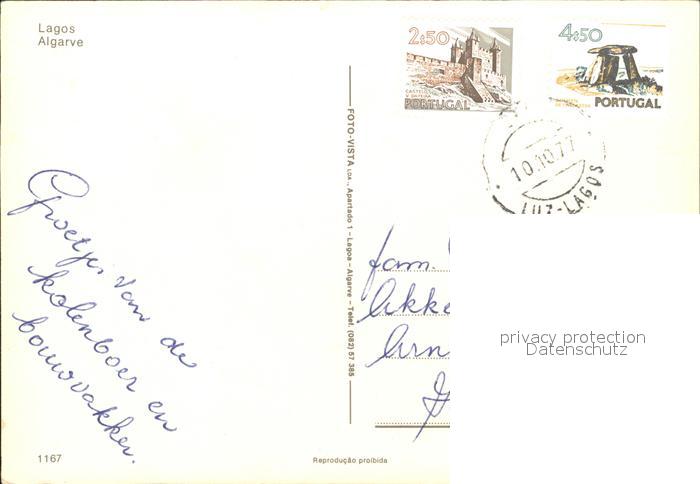 Lagos
Algarve
2$50
CASTELO
V. DA FEIRA
PORTUGAL
4$50
PORTUGAL
10.10.77
LUZ-LAGOS
Groetjes van de
kolenboer en
bouwvakker.
FOTO-VISTA LDA., Apartado 1 - Lagoa - Algarve - Telef. (082) 57 385
fam.
privacy protection
Datenschutz
1167
Reprodução proibida